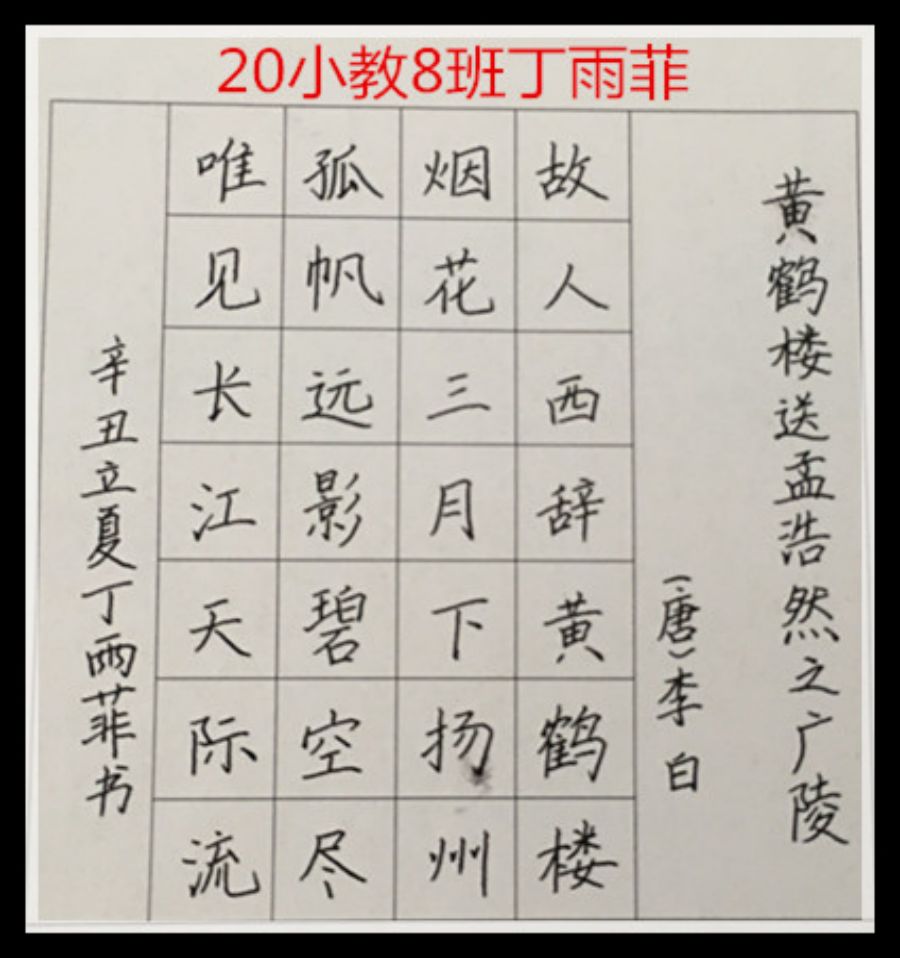 20小教8班丁雨菲
黄鹤楼送孟浩然之广陵
(唐)李白
故人西辞黄鹤楼
烟花三月下扬州
孤帆远影碧空尽
唯见长江天际流
辛丑立夏丁雨菲书